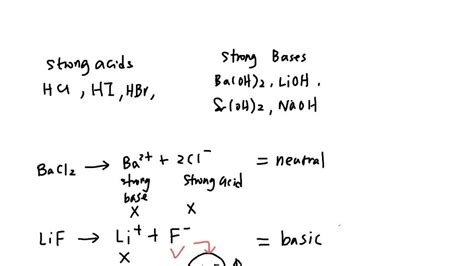 Strong acids
HCl, HI, HBr,
Strong Bases
Ba(OH)2, LiOH,
Sr(OH)2, NaOH
BaCl2 → Ba²⁺ + 2Cl⁻ = neutral
strong base
strong acid
X X
LiF → Li⁺ + F⁻ = basic
X ✓